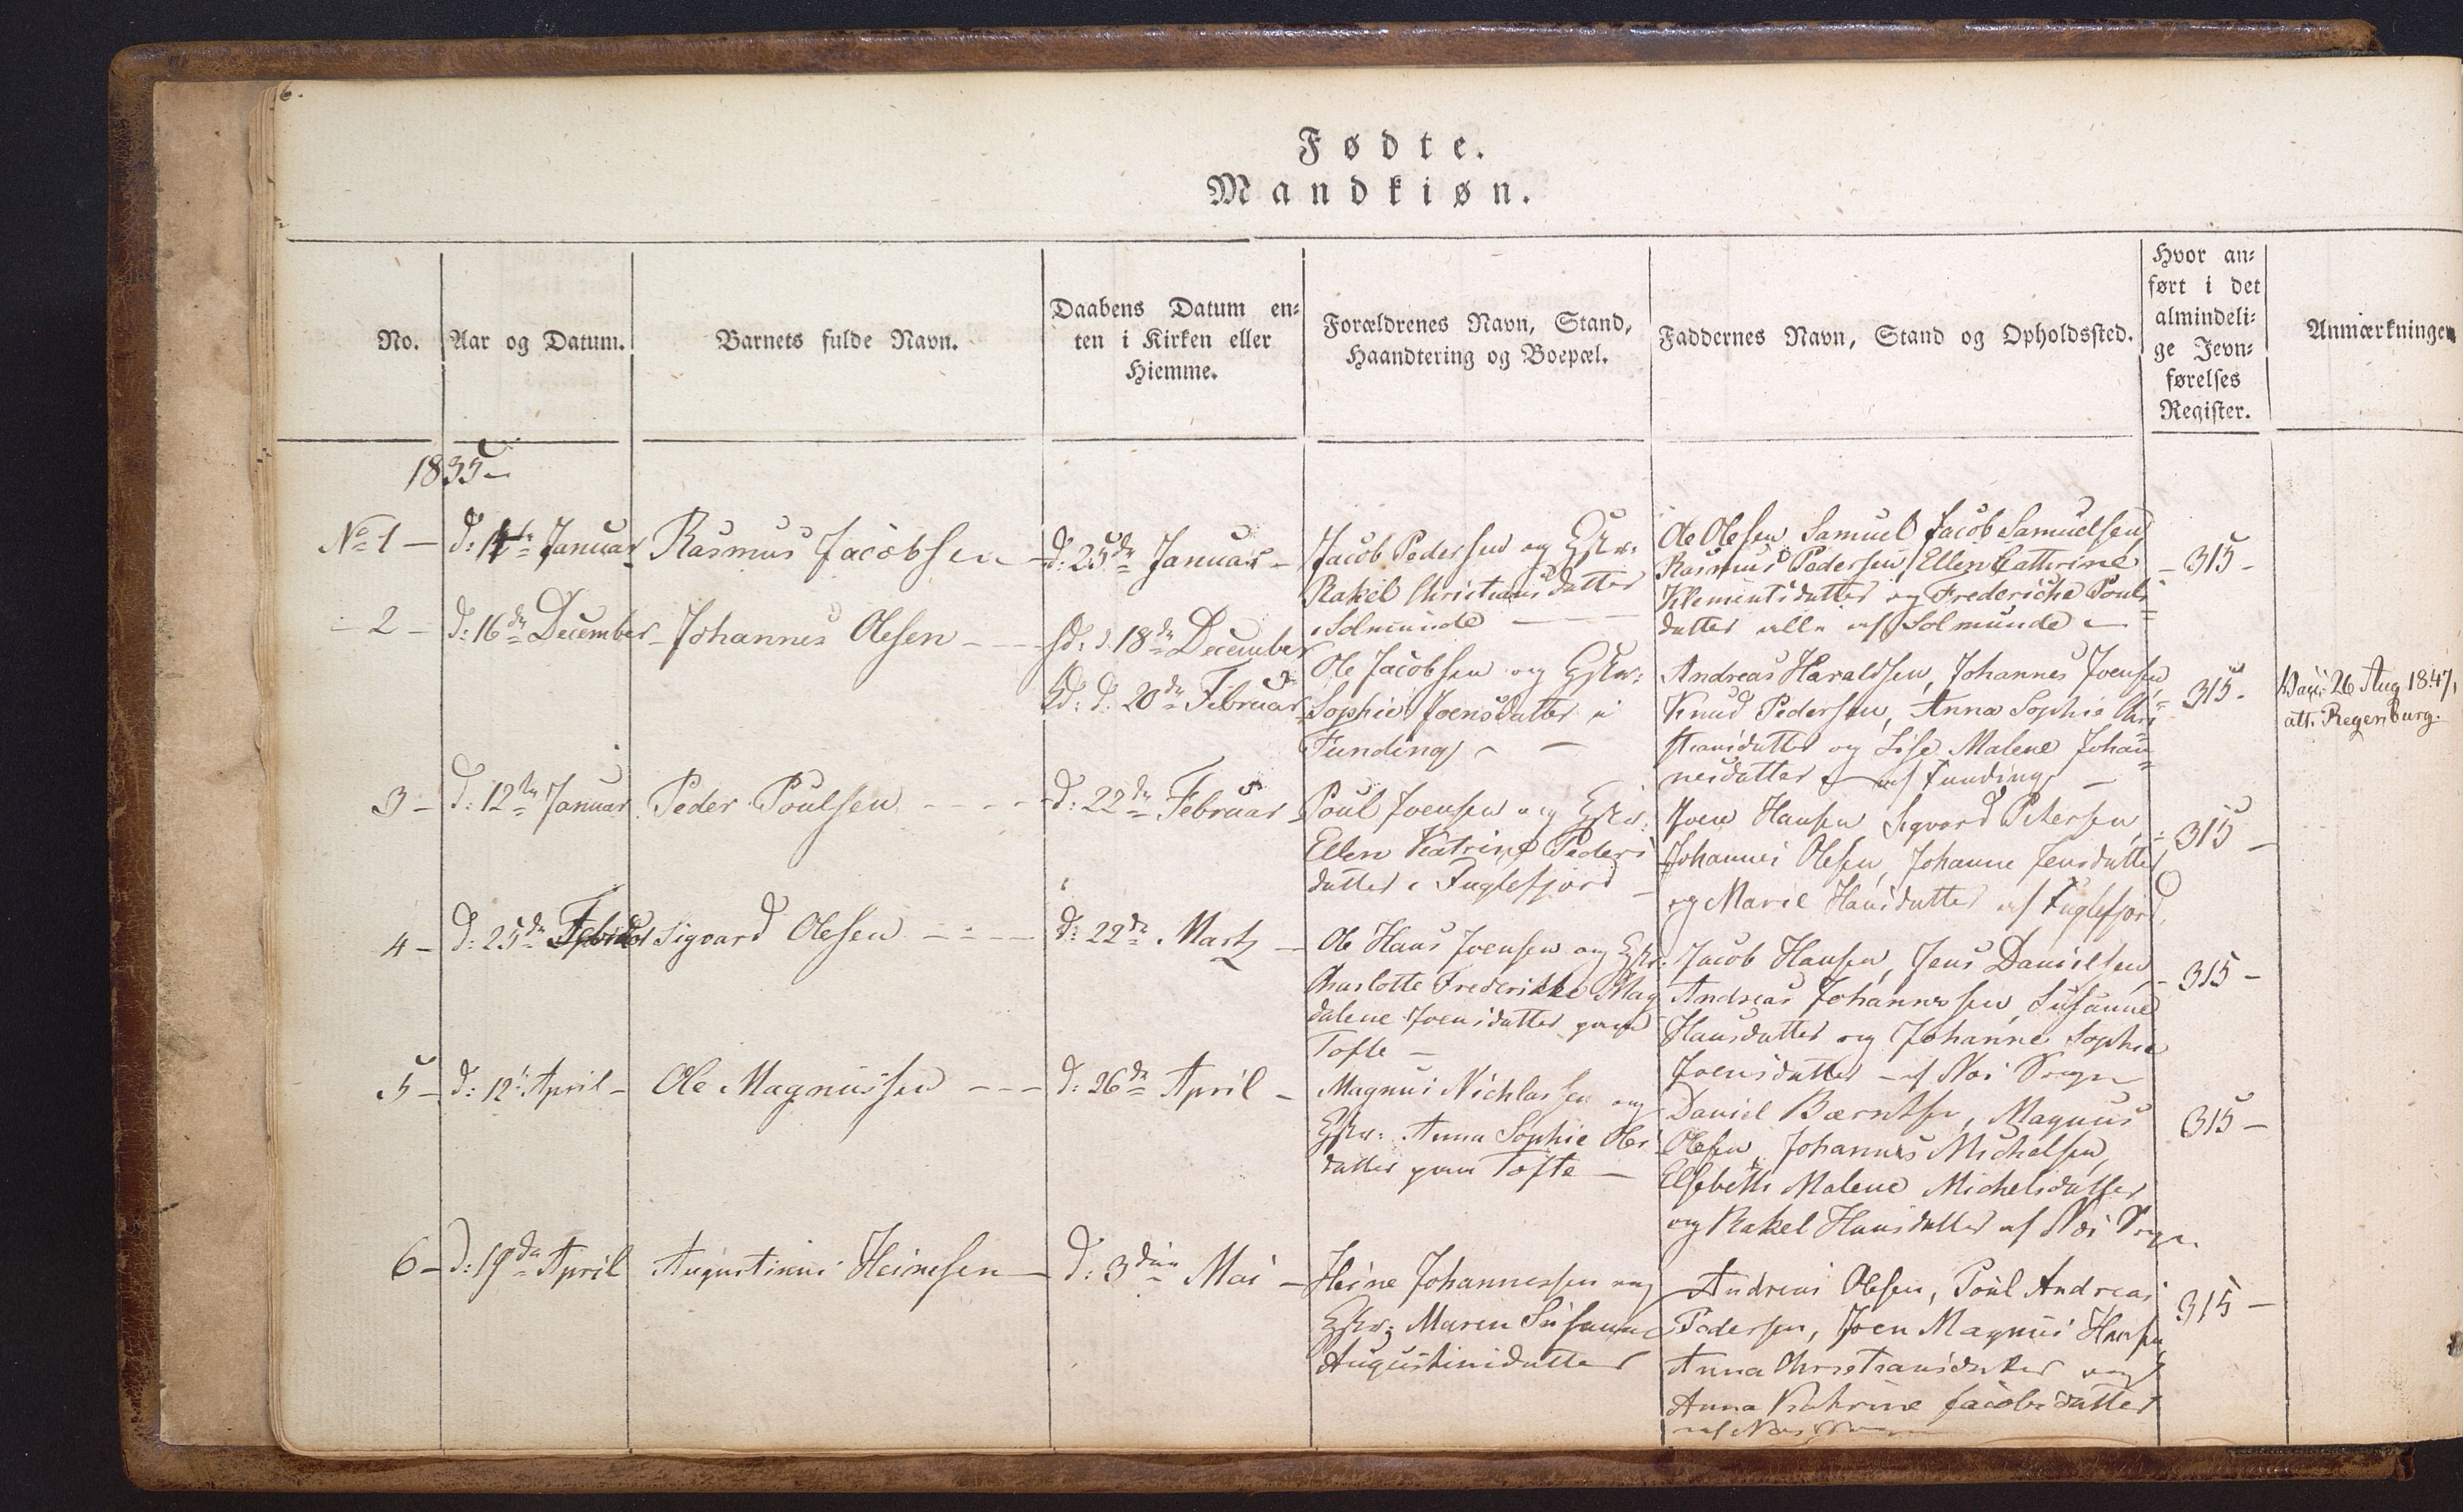 6.
Fødte.
Mandkiøn.
No.
Aar og Datum.
Barnets fulde Navn.
Daabens Datum en-
ten i Kirken eller
Hiemme.
Forældrenes Navn, Stand,
Haandtering og Boepæl.
Faddernes Navn, Stand og Opholdssted.
Hvor an-
ført i det
almindeli-
ge Jevn-
førelses
Register.
Anmærkninger
1835-
No 1 -
Januar
Rasmus Jacobsen
d: 25de Januar -
Jacob Pedersen og Hstr:
Rakel Christiansdatter
i Solmunde
Ole Olesen, Samuel Jacob Samuelsen
Rasmus Pedersen, Ellen Cathrine
Klementsdatter og Fredericha Pouls-
datter alle af Solmunde
- 315 -
- 2 -
d: 16de December
Johannes Olesen
d. 18de December
d. 20de Februar
Ole Jacobsen og Hstr:
Sophie Joensdatter i
Funding -
Andreas Haraldsen, Johannes Joensen
Knud Pedersen, Anna Sophie Chri-
stiansdatter og Lise Malene Johan-
nesdatter af Funding -
315.
Vacc: 26 Aug 1847,
att. Regenburg.
3 -
d: 12te Januar
Peder Poulsen
d: 22de Februar
Poul Joensen og Hstr:
Ellen Katrine Peders
datter i Fuglefjord -
Joen Hansen, Sigvard Petersen,
Johannes Olesen, Johanne Jensdatter
og Marie Hansdatter af Fuglefjord.
315 -
4 -
d: 25de
Sigvard Olesen
d: 22de Martz -
Ole Hans Joensen og Hstr:
Charlotte Frederikke Mag
dalene Joensdatter paa
Tofte -
Jacob Hansen, Jens Danielsen
Andreas Johannessen, Susanne
Hansdatter og Johanne Sophie
Joensdatter af Næs Sogn
- 315 -
5 -
d: 12te April -
Ole Magnussen
d: 26de April -
Magnus Nichlassen og
Hstr: Anna Sophie Oles
datter paa Tofte -
Daniel Bærntsen, Magnus
Olesen, Johannes Michelsen,
Elsebeth Malene Michelsdatter
og Rakel Hansdatter af Næs Sogn
315 -
6 -
d: 19de April
Augustinus Heinesen
d: 3die Mai -
Heine Johannessen og
Hstr: Maren Susanne
Augustinidatter
Andreas Olesen, Poul Andreas
Pedersen, Joen Magnus Hansen
Anna Christiansdatter og
Anna Kathrine Jacobsdatter
af Næs Sogn
315 -